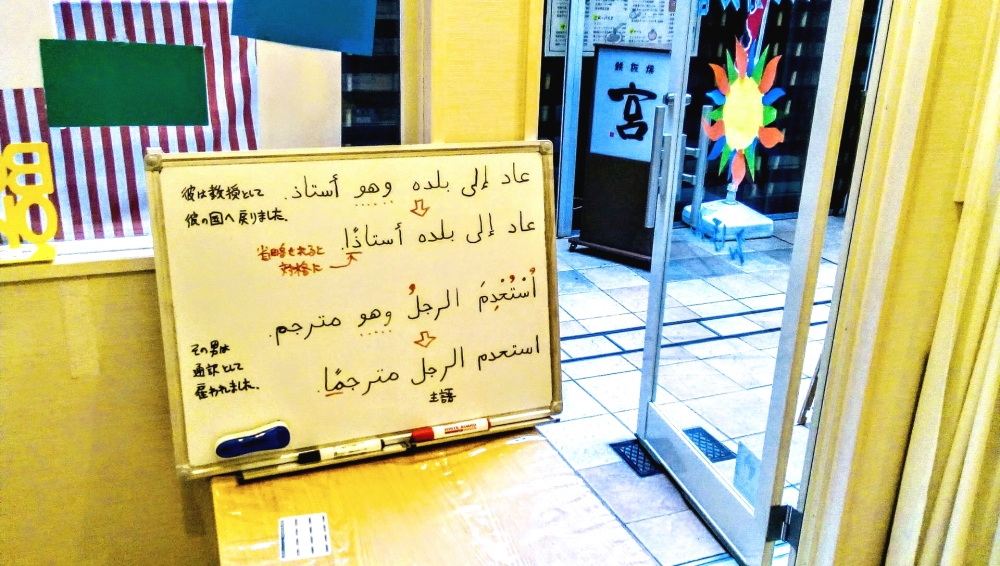 عاد إلى بلده وهو أستاذ.
彼は教授として
彼の国へ戻りました。
عاد إلى بلده أستاذًا.
省略されると
対格に
اُسْتُخْدِمَ الرجلُ وهو مترجم.
استخدم الرجل مترجمًا.
主語
その男は
通訳として
雇われました。
鉄板焼
宮